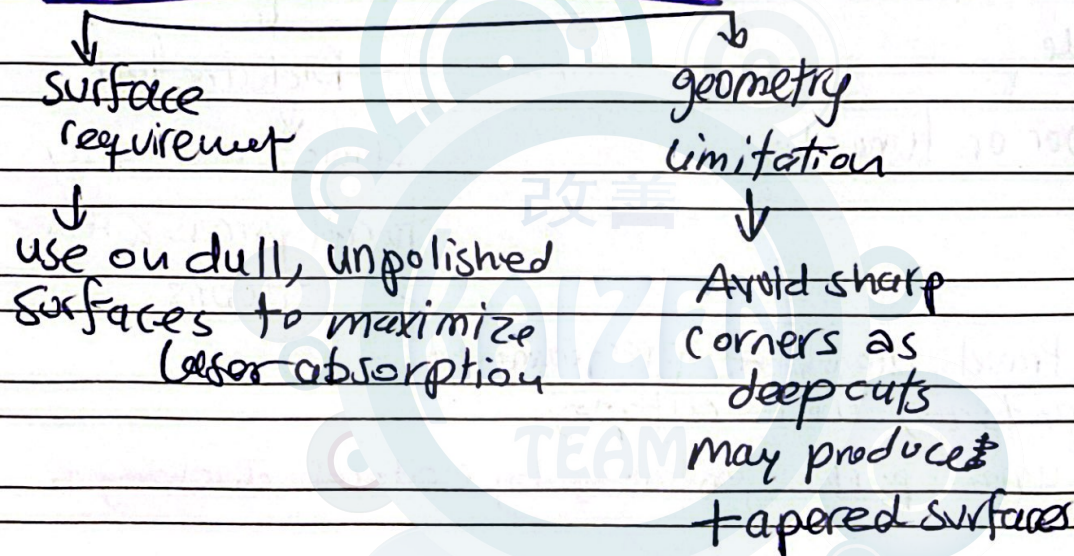 surface
requiremet
use on dull, unpolished
surfaces to maximize
laser absorption
geometry
limitation
Avoid sharp
corners as
deep cuts
may produce
tapered surfaces
改善
KAIZEN
TEAM